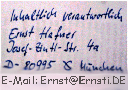 Inhaltlich verantwortlich
Ernst Hafner
Josef-Zintl-Str. 4a
D-80995 München
E-Mail: Ernst@Ernsti.DE